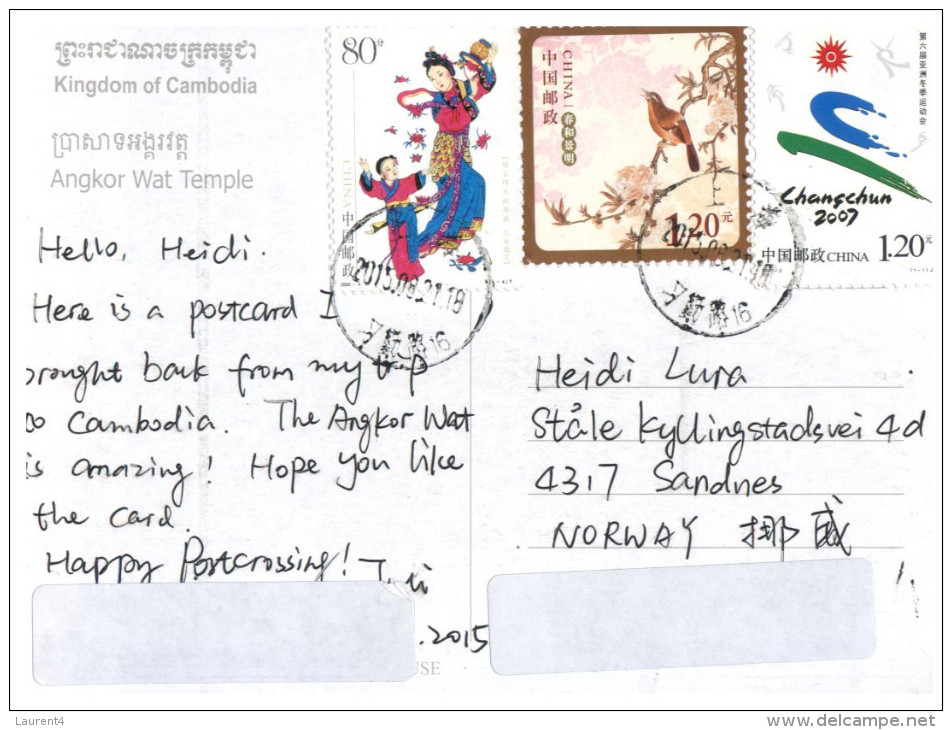 ព្រះរាជាណាចក្រកម្ពុជា
Kingdom of Cambodia
ប្រាសាទអង្គរវត្ត
Angkor Wat Temple
80分
CHINA
中国邮政
CHINA
中国邮政
春和景明
1.20元
第六届亚洲冬季运动会
Changchun
2007
中国邮政CHINA
1.20元
2015.08.21.18
16
16
Hello, Heidi.
Here is a postcard I
brought back from my trip
to Cambodia. The Angkor Wat
is amazing! Hope you like
the card.
Happy Postcrossing!
.2015
USE
Heidi Lura
Ståle Kyllingstadsvei 4d
4317 Sandnes
NORWAY 挪威
Laurent4
www.delcampe.net